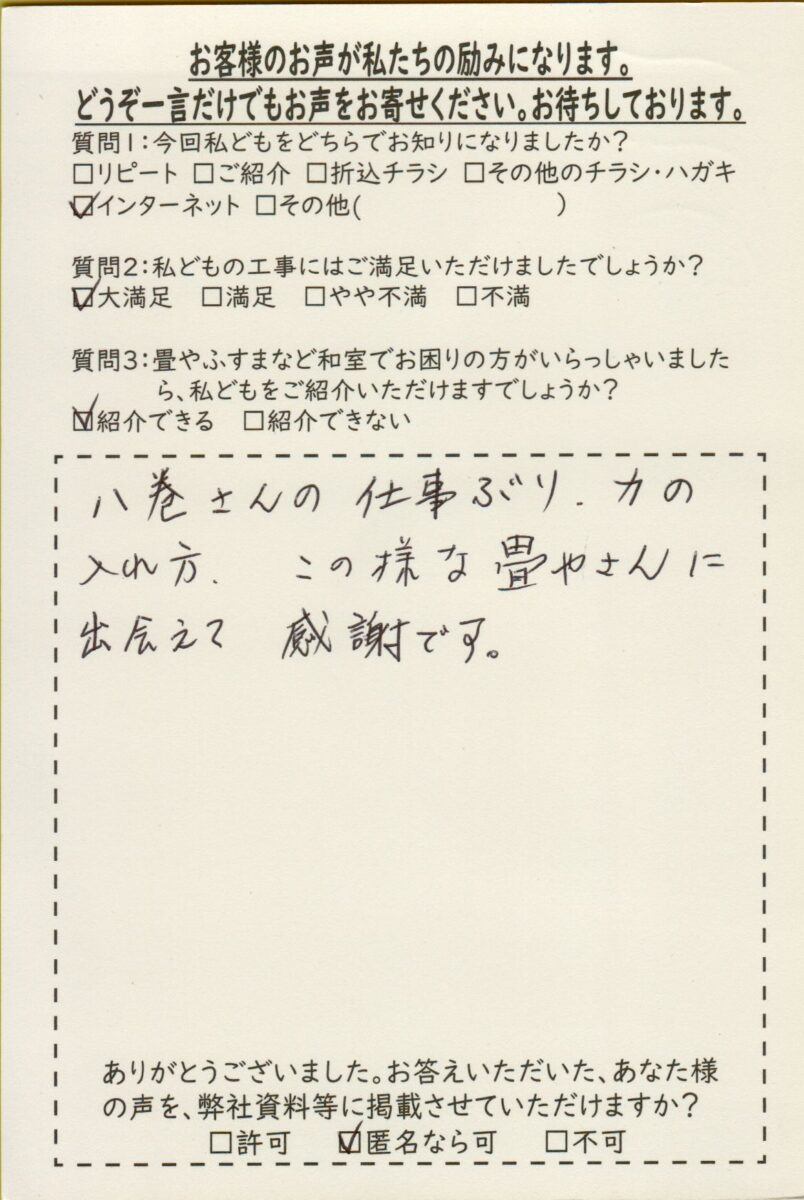 お客様のお声が私たちの励みになります。
どうぞ一言だけでもお声をお寄せください。お待ちしております。
質問1:今回私どもをどちらでお知りになりましたか?
□リピート □ご紹介 □折込チラシ □その他のチラシ・ハガキ
☑インターネット □その他( )
質問2:私どもの工事にはご満足いただけましたでしょうか?
☑大満足 □満足 □やや不満 □不満
質問3:畳やふすまなど和室でお困りの方がいらっしゃいました
ら、私どもをご紹介いただけますでしょうか?
☑紹介できる □紹介できない
八巻さんの 仕事ぶり. 力の
入れ方. この様な畳やさんに
出会えて 感謝です。
ありがとうございました。お答えいただいた、あなた様
の声を、弊社資料等に掲載させていただけますか?
□許可 ☑匿名なら可 □不可